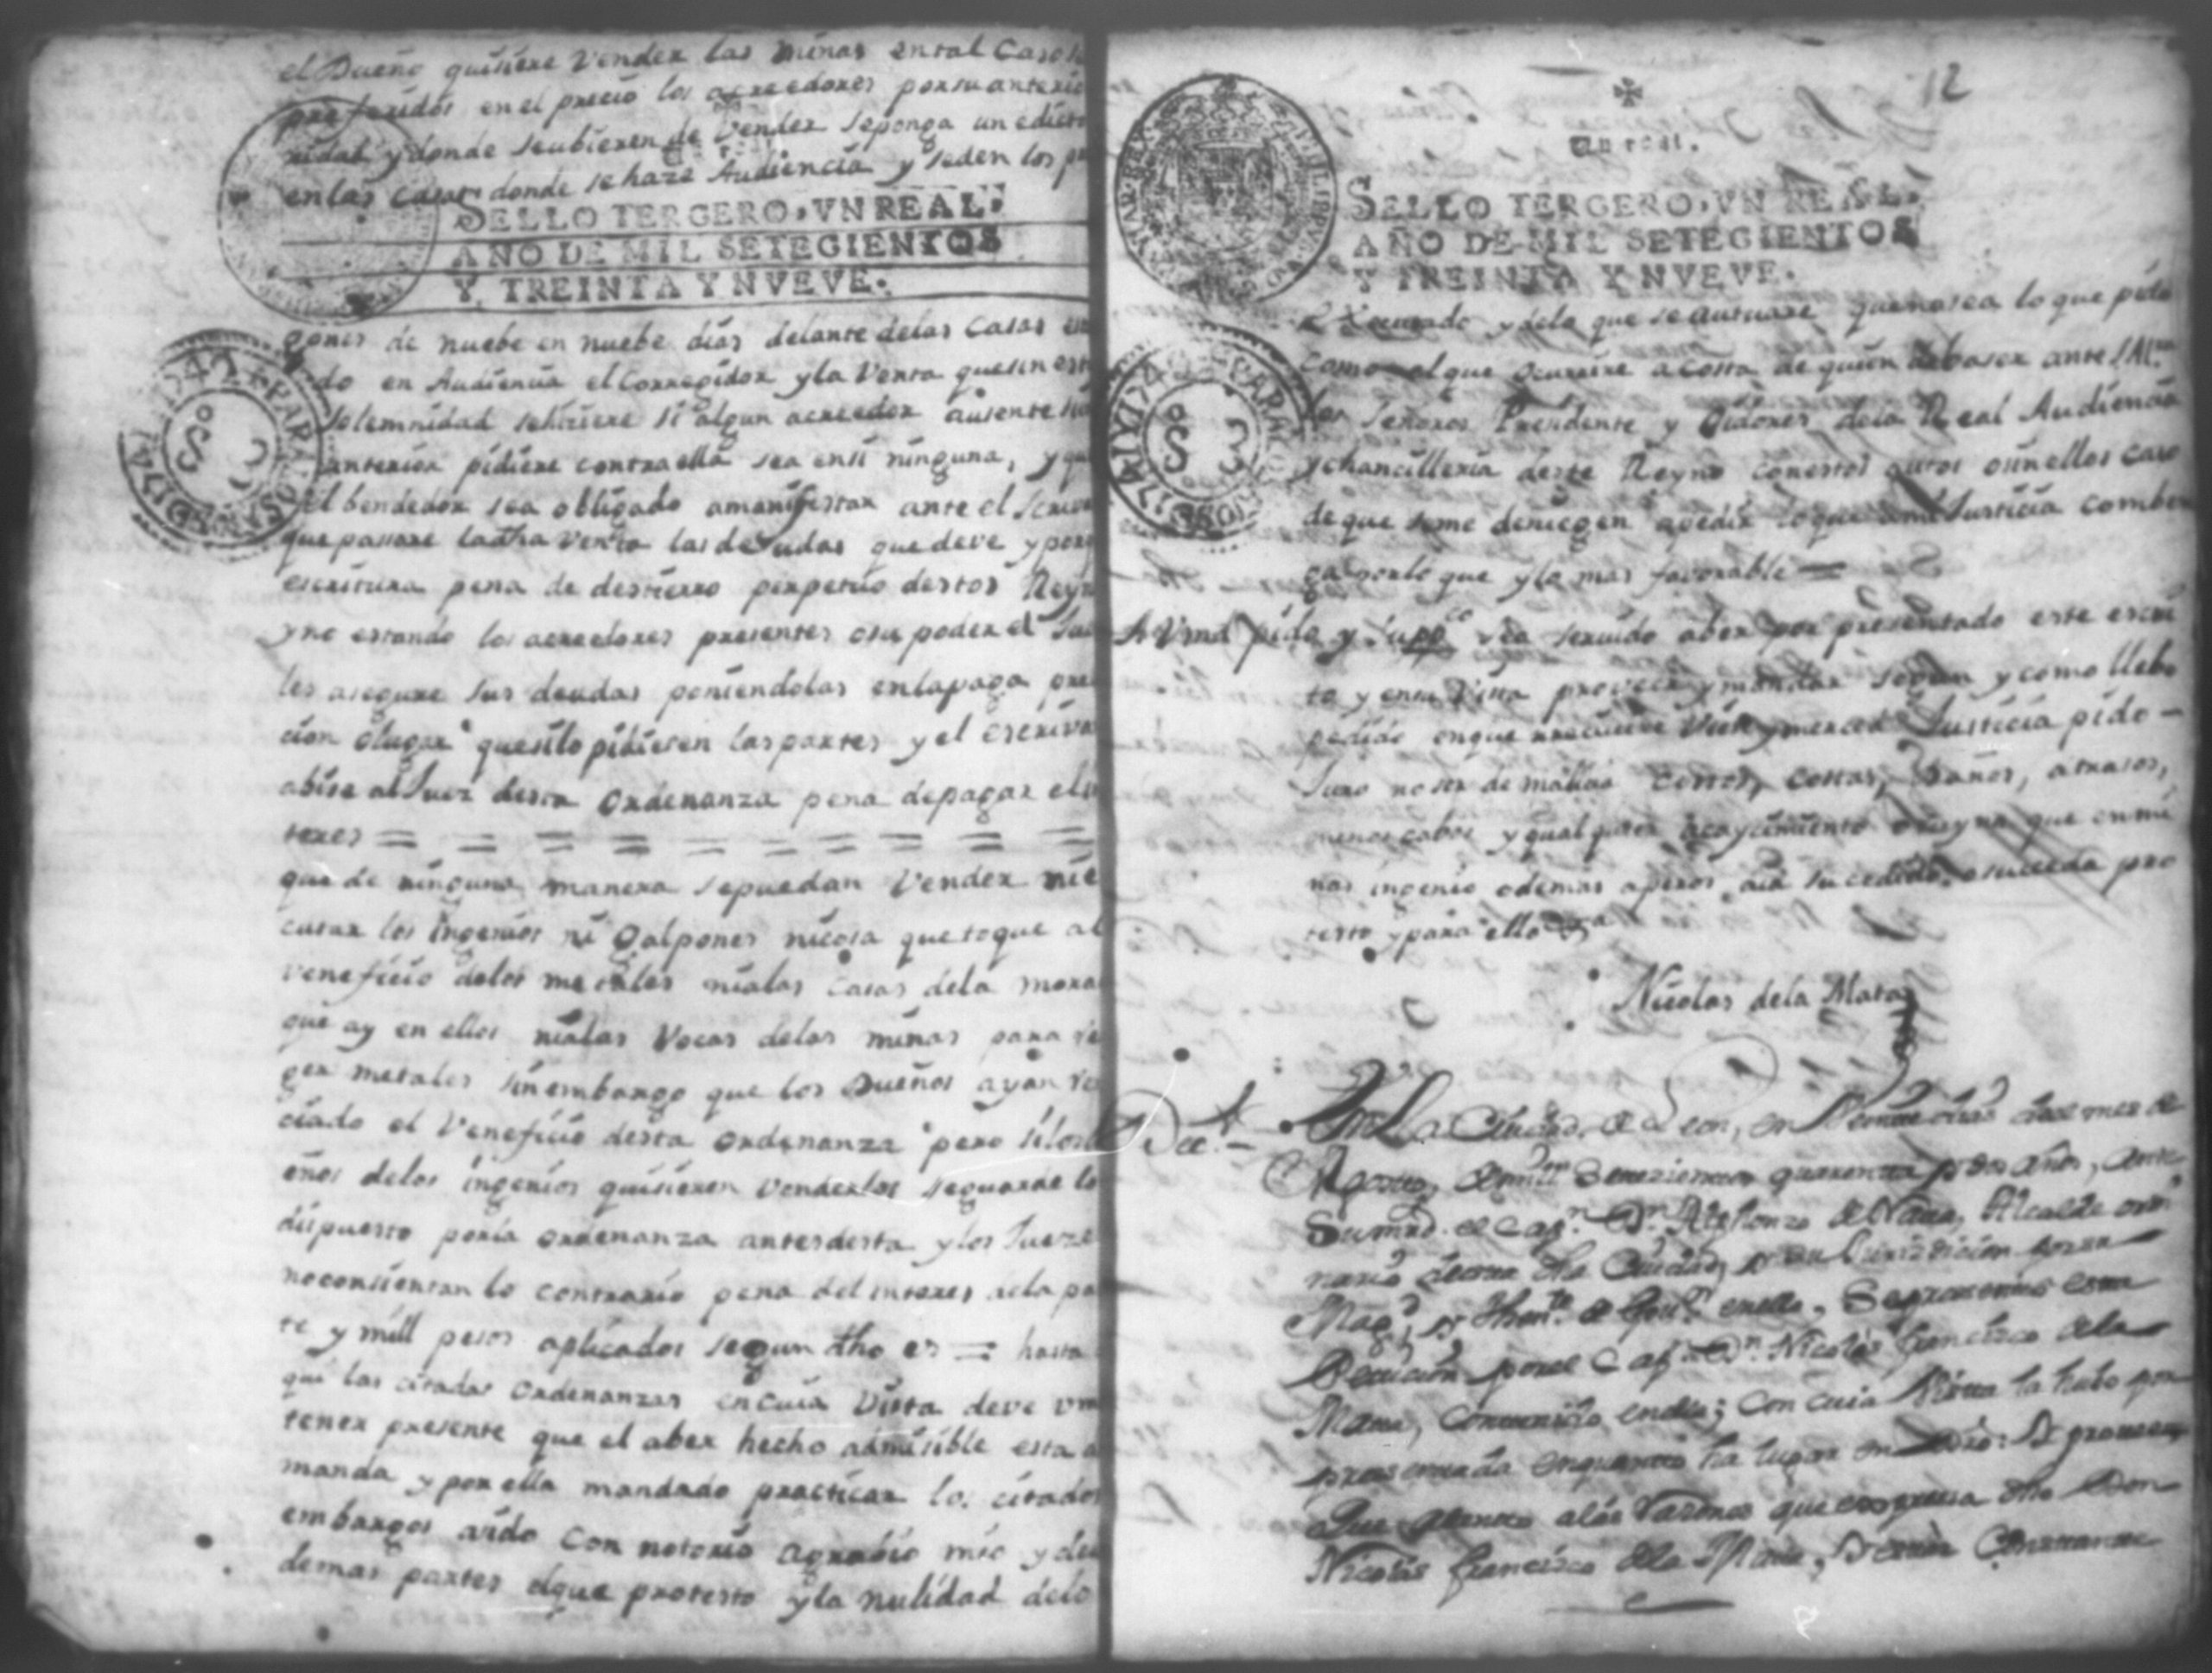 el Dueño quisiere Vender las minas en tal Caso
preferidos en el precio los acreedores por su anterio
ridad y donde se ubieren de Vender se ponga un edicto
en las casas donde se haze Audiencia y se den los
SELLO TERCERO, VN REAL.
AÑO DE MIL SETECIENTOS
Y TREINTA Y NVEVE.
gones de nuebe en nuebe dias delante de las Casas
do en Audiencia el Corregidor y la Venta que sin esta
solemnidad se hiziere si algun acreedor ausente
anterior pidiere contra ella sea en si ninguna, y que
el bendedor sea obligado a manifestar ante el
que passare la dha Venta las deudas que deve y por
escritura pena de destierro perpetuo destos Reyn
y no estando los acreedores presentes o su poder el
les asegure sus deudas poniendolas en la paga
cion o lugar que si lo pidieren las partes y el escriva
abise al Juez desta ordenanza pena de pagar el
teres = = = = = = = = = =
que de ninguna manera se puedan Vender
cutar los Ingenios ni Galpones ni cosa que toque al
veneficio de los metales ni a las casas de la mora
que ay en ellos ni a las Vocas de las minas para
ger metales sin embargo que los Dueños ayan
ciado el Veneficio desta ordenanza pero si los
eños de los ingenios quisieren Venderlos se guarde lo
dispuesto por la ordenanza antes desta y los Jueze
no consientan lo contrario pena del interes de la pa
te y mill pesos aplicados segun dho es = hasta
qui las citadas ordenanzas en cuia Vista deve vm
tener presente que el aber hecho admisible esta
manda y por ella mandado practicar los citados
embargos a sido con notorio agrabio mio y de
demas partes el que protesto y la nulidad de lo
12
Un real.
SELLO TERCERO, VN REAL.
AÑO DE MIL SETECIENTOS
Y TREINTA Y NVEVE.
y de lo que se autuare que no sea lo que pido
como el que ocurrire a costa de quien deba ser ante
los Señores Presidente y Oidores de la Real Audiencia
y chancilleria deste Reyno con estos autos o sin ellos caso
de que se me deniegen a pedir lo que a mi Justicia comben
ga por lo que y lo mas favorable =
A Vmd pido y suppco sea servido aber por presentado este escri
to y en su Vista proveer y mandar segun y como llebo
pedido en que reciuire y merced Justicia pido
Juro no ser de malicia costos, costas, Daños, atrasos,
menoscabos y qualquier acaycimiento que en mi
nas ingenio o demas aperos aia sucedido o suceda pro
testo y para ello &a
Nicolas de la Mata
Dect.
En La Ciudad de Leon, en dias del mes de
Agosto, de mill Setezientos quarenta y dos años, ante
Su mrd. el Capn. Dn. Alphonzo de Nava, Alcalde ordi
nario desta dha Ciudad, y su Jurizdicion por su
Magd. y Thente. de Govr. en ella, Se presento esta
Peticion por el Capn. Dn. Nicolás francisco de la
Mata, Contenido en ella; Con cuia Vista la hubo por
presentada en quanto ha lugar en dro:
Que atento a las Razones que expresa dho Don
Nicolás francisco de la Mata,